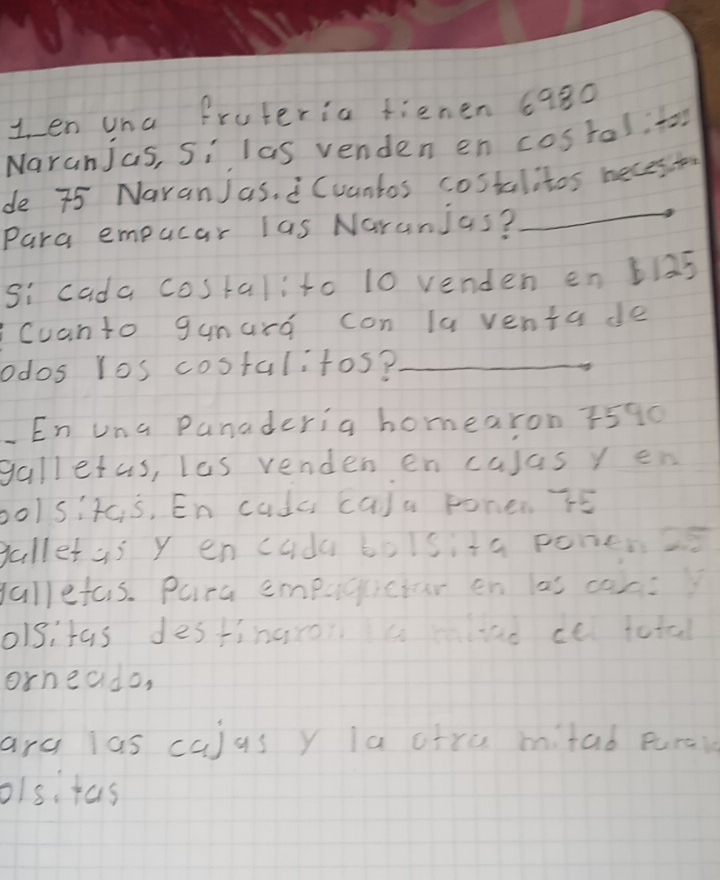 1_en una fruteria tienen 6980
Naranjas, si las venden en costalitos
de 75 Naranjas. ¿Cuantos costalitos necesitan
Para empacar las Naranjas?
si cada costalito lo venden en $125
¿Cuanto ganará con la venta de
odos los costalitos?
_ En una Panaderia hornearon 7590
galletas, las venden en cajas y en
bolsitas. En cada caja ponen 75
galletas y en cada bolsita ponen 25
galletas. Para empaquetar en las cajas y
olsitas destinaron la mitad del total
orneado,
ara las cajas y la otra mitad Para la
olsitas